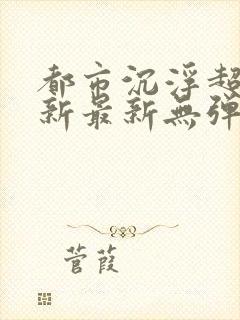 都市沉浮超
新最新無弹
菅葭